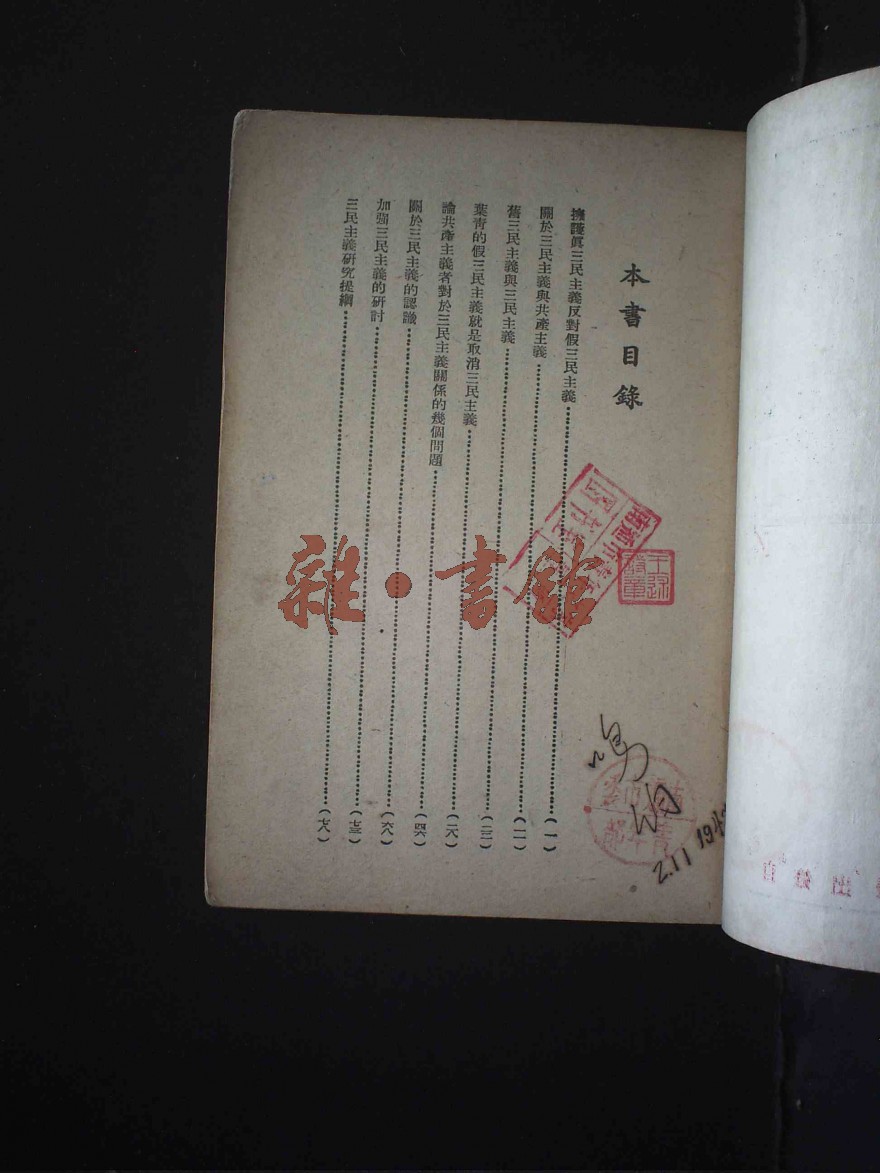 本書目錄
擁護眞三民主義反對假三民主義……(一)
關於三民主義與共產主義……(一一)
舊三民主義與三民主義……(二三)
葉青的假三民主義就是取消三民主義……(二八)
論共產主義者對於三民主義關係的幾個問題……(四六)
關於三民主義的認識……(六八)
加強三民主義的研討……(七三)
三民主義研究提綱……(七八)
雜·書館